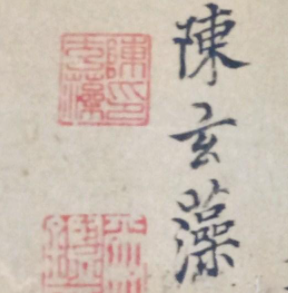 陳玄藻
陳印
玄藻